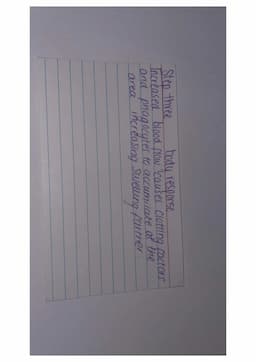 Step three body response
Increased blood flow causes clotting factors
and phagocytes to accumulate at the
area increasing swelling further